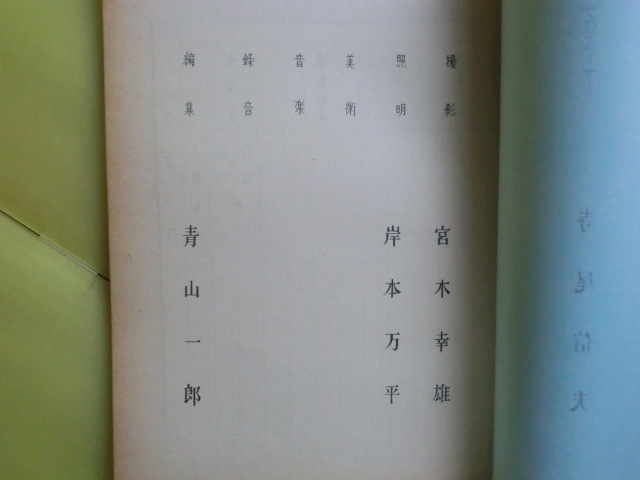 撮影 宮木幸雄
照明 岸本万平
美術
音楽
録音
編集 青山一郎
寺尾信夫